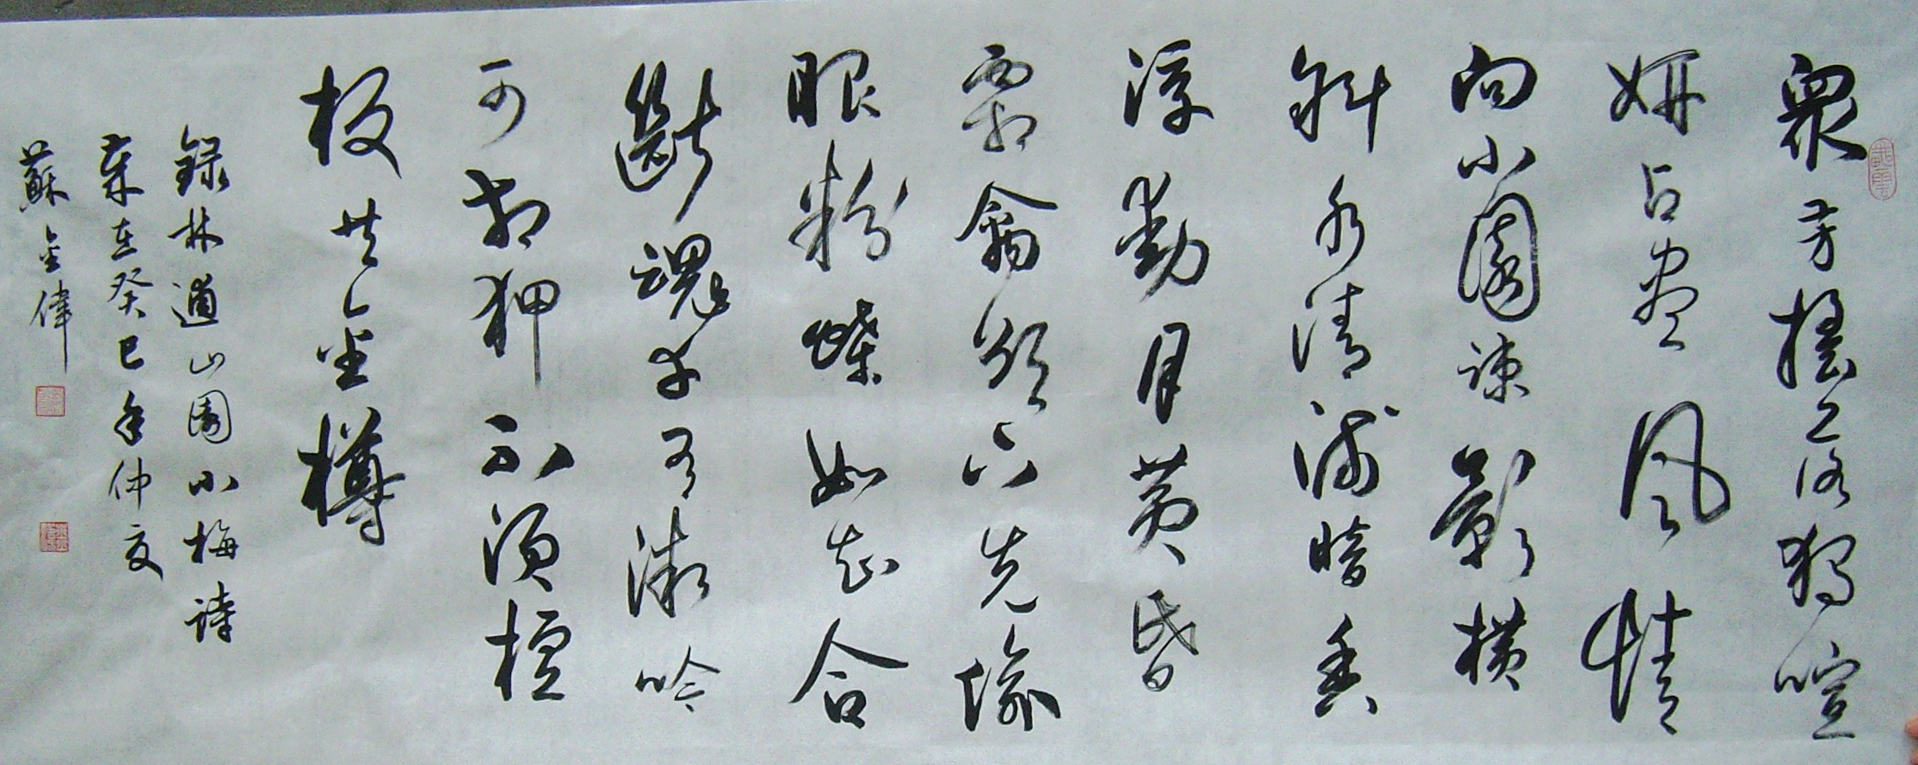 眾芳摇落獨喧
妍占尽风情
向小園疎影横
斜水清浅暗香
浮動月黄昏
霜禽欲下先偷
眼粉蝶如知合
斷魂幸有微吟
可相狎不须檀
板共金樽
録林逋山園小梅詩
歲在癸巳年仲夏
蘇金偉